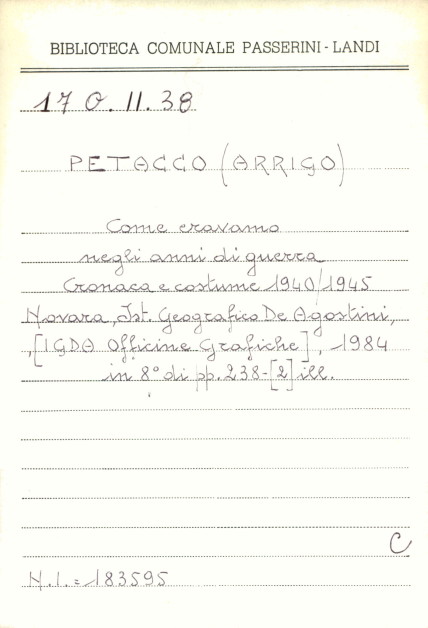 BIBLIOTECA COMUNALE PASSERINI - LANDI
17 O. II. 38
PETACCO (ARRIGO)
Come eravamo
negli anni di guerra
Cronaca e costume 1940/1945
Novara, Ist. Geografico De Agostini,
,[IGDA Officine Grafiche], 1984
in 8° di pp. 238-[2] ill.
C
N.I.= 183595